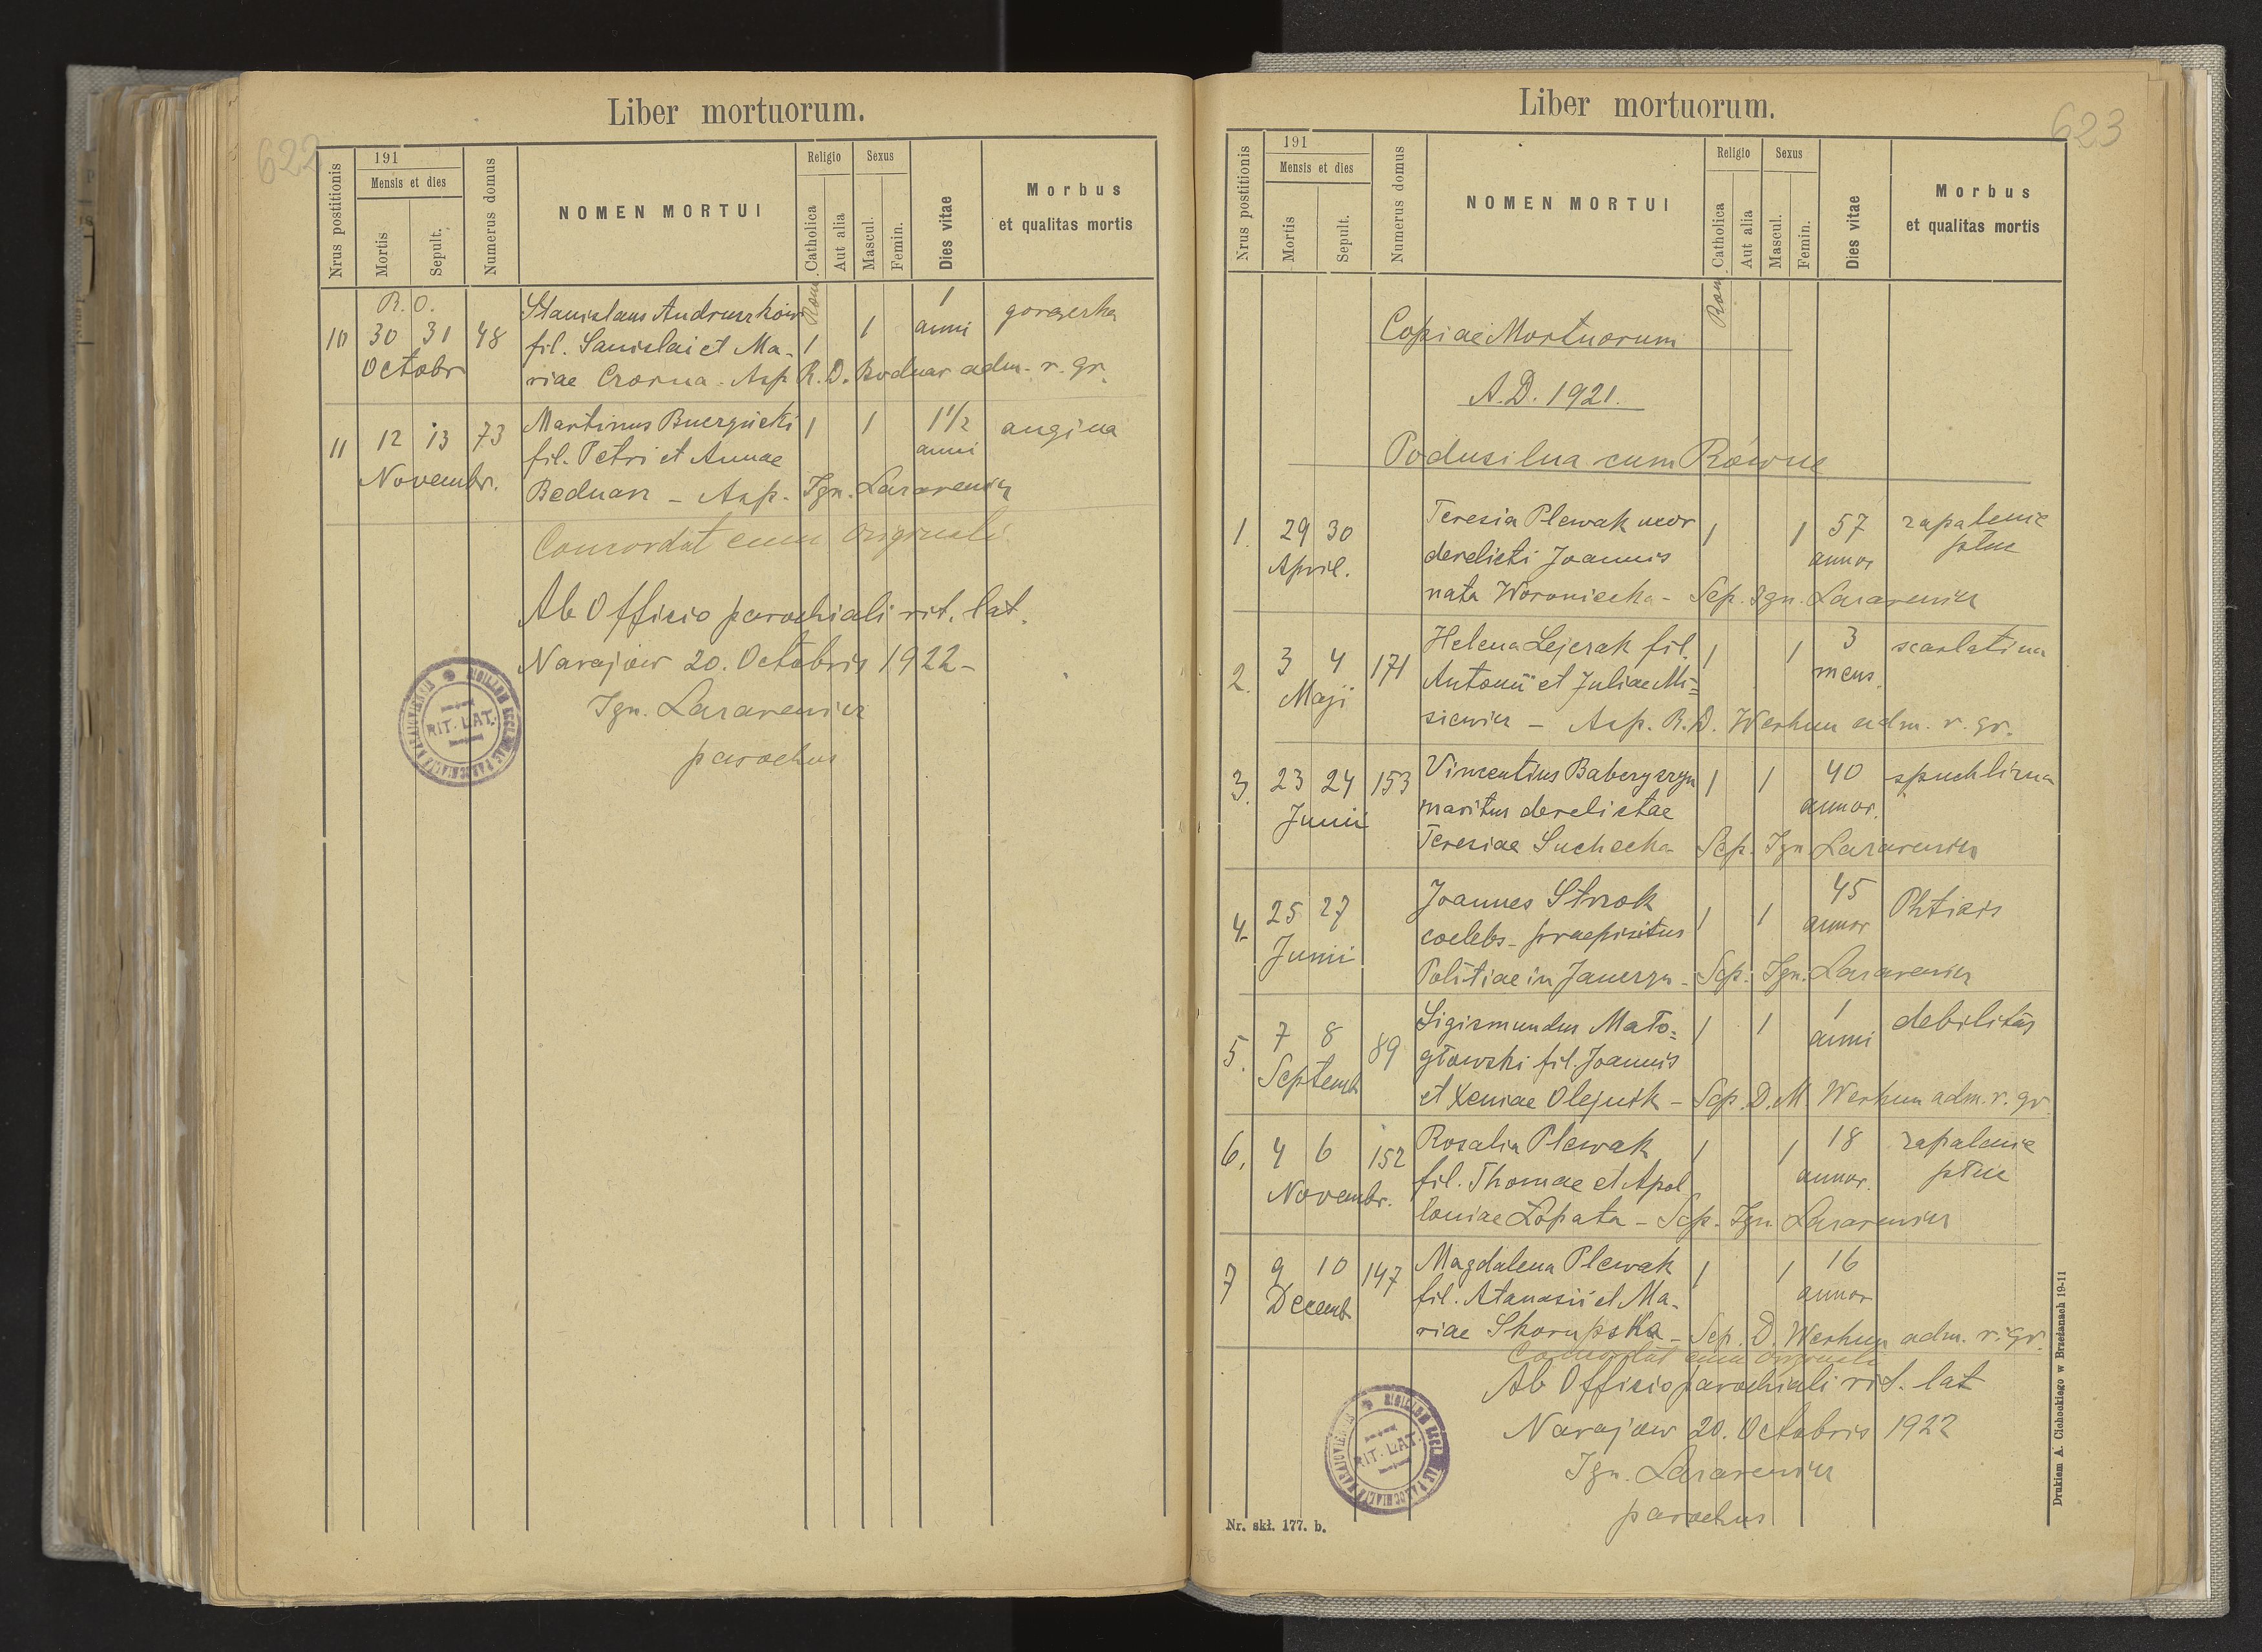 622
Liber mortuorum.
Nrus postitionis
191
Mensis et dies
Mortis
Sepult.
Numerus domus
NOMEN MORTUI
Religio
Catholica
Aut alia
Sexus
Mascul.
Femin.
Dies vitae
Morbus
et qualitas mortis
Rom.
R. O.
10 30 31 48 Stanislaus 1 1 anni gorączka
Octobr
fil. Sanislai et Ma-
riae Czorna - Asp. R. D. Bodnar adm. r. gr.
11 12 13 73 Martinus 1 1 1 1/2 anni angina
Novembr.
fil. Petri et Annae
Bednarz - Asp. Ign. Łazarewicz
Concordat cum originali
Ab Officio parochiali rit. lat.
Narajów 20. Octobris 1922 -
Ign. Łazarewicz
parochus
RIT. LAT.
623
Liber mortuorum.
Nrus postitionis
191
Mensis et dies
Mortis
Sepult.
Numerus domus
NOMEN MORTUI
Religio
Catholica
Aut alia
Sexus
Mascul.
Femin.
Dies vitae
Morbus
et qualitas mortis
Rom
Copiae Mortuorum
A.D. 1921.
Podusilna cum Równe
1. 29 30 Teresia Plewak uxor 1 1 57 zapalenie
April. derelicti Joannis annor płuc
nata Woroniecka - Sep. Ign. Łazarewicz
2. 3 4 171 Helena Lejerak fil. 1 1 3 scarlatina
Maji Antonii et Juliae Mi= mens.
siewicz - Asp. R.D. Werhun adm. r. gr.
3. 23 24 153 Vincentius 1 1 40 spuchlizna
Junii maritus derelictae annor.
Teresiae Suchecka Sep. Ign. Łazarewicz
4. 25 27 Joannes 1 1 45 Phtisis
Junii coelebs - praepositus annor
Politiae in Janczyn - Sep. Ign. Łazarewicz
5. 7 8 89 Sigismundus Mało= 1 1 1 debilitas
Septemb głowski fil. Joannis anni
et Xeniae Olejnik - Sep. D. M. Werhun adm. r. gr.
6. 4 6 152 Rosalia Plewak 1 1 18 zapalenie
Novembr. fil. Thomae et Apol annor. płuc
loniae Łopata - Sep. Ign. Łazarewicz
7 9 10 147 Magdalena Plewak 1 1 16
Decemb fil. Atanasii et Ma- annor
riae Skorupska - Sep. D. Werhun adm. r. gr.
Concordat cum originali
Ab Officio parochiali rit. lat
Narajów 20. Octobris 1922
Ign. Łazarewicz
parochus
RIT. LAT.
Nr. skł. 177. b.
Drukiem A. Cichockiego w Brzeżanach 19-11